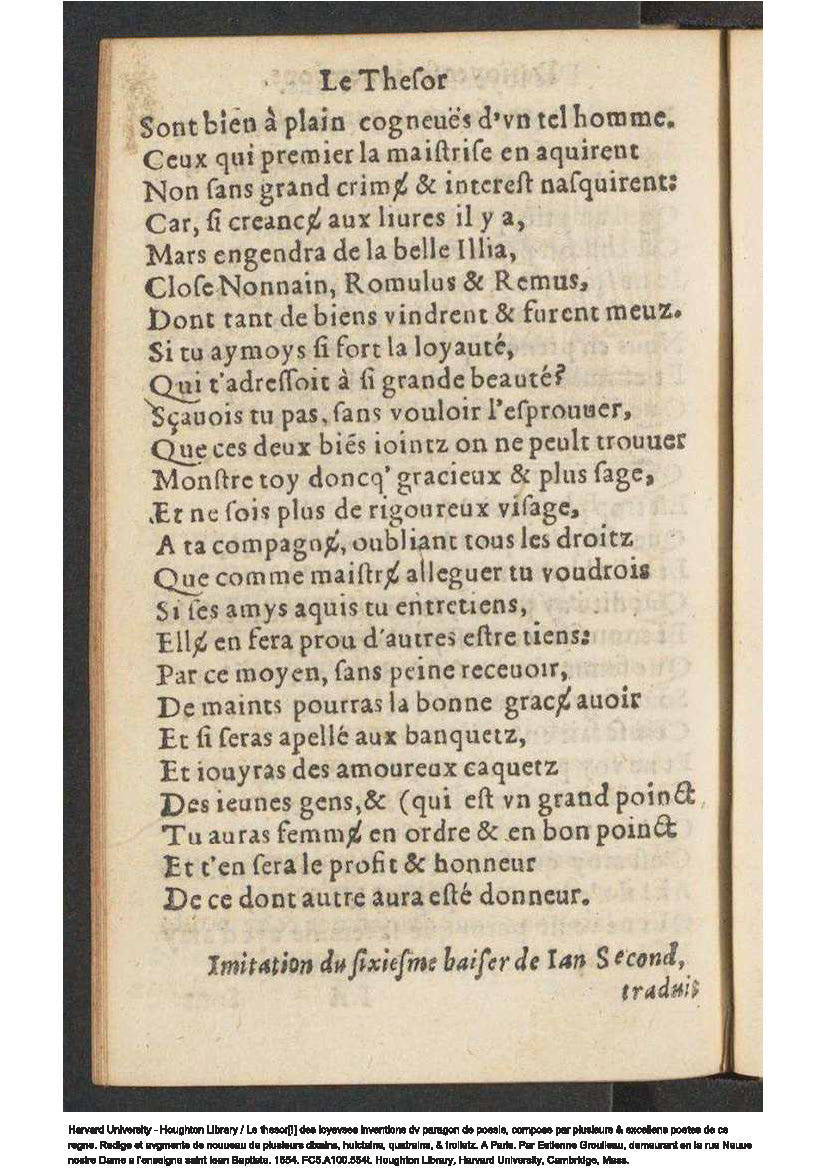 Le Theſor
Sont bien à plain cogneuës d'vn tel homme.
Ceux qui premier la maiſtriſe en aquirent
Non ſans grand crimɇ & intereſt naſquirent:
Car, ſi creancɇ aux liures il y a,
Mars engendra de la belle Illia,
Cloſe Nonnain, Romulus & Remus,
Dont tant de biens vindrent & furent meuz.
Si tu aymoys ſi fort la loyauté,
Qui t'adreſſoit à ſi grande beauté?
Sçauois tu pas, ſans vouloir l'eſprouuer,
Que ces deux biés iointz on ne peult trouuer
Monſtre toy doncq' gracieux & plus ſage,
Et ne ſois plus de rigoureux viſage,
A ta compagnɇ, oubliant tous les droitz
Que comme maiſtrɇ alleguer tu voudrois
Si ſes amys aquis tu entretiens,
Ellɇ en fera prou d'autres eſtre tiens:
Par ce moyen, ſans peine receuoir,
De maints pourras la bonne gracɇ auoir
Et ſi ſeras apellé aux banquetz,
Et iouyras des amoureux caquetz
Des ieunes gens, & (qui eſt vn grand poinct,
Tu auras femmɇ en ordre & en bon poinct
Et t'en ſera le profit & honneur
De ce dont autre aura eſté donneur.
Imitation du ſixieſme baiſer de Ian Second,
traduis
Harvard University - Houghton Library / Le thesor[!] des ioyevses inventions dv paragon de poesie, compose par plusieurs & excellens poetes de ce
regne. Redige et avgmente de nouueau de plusieurs dixains, huictains, quatrains, & trolletz. A Paris. Par Estienne Groulleau, demeurant en la rue Neuue
nostre Dame a l'enseigne saint Iean Baptiste. 1554. FC5.A100.554t. Houghton Library, Harvard University, Cambridge, Mass.